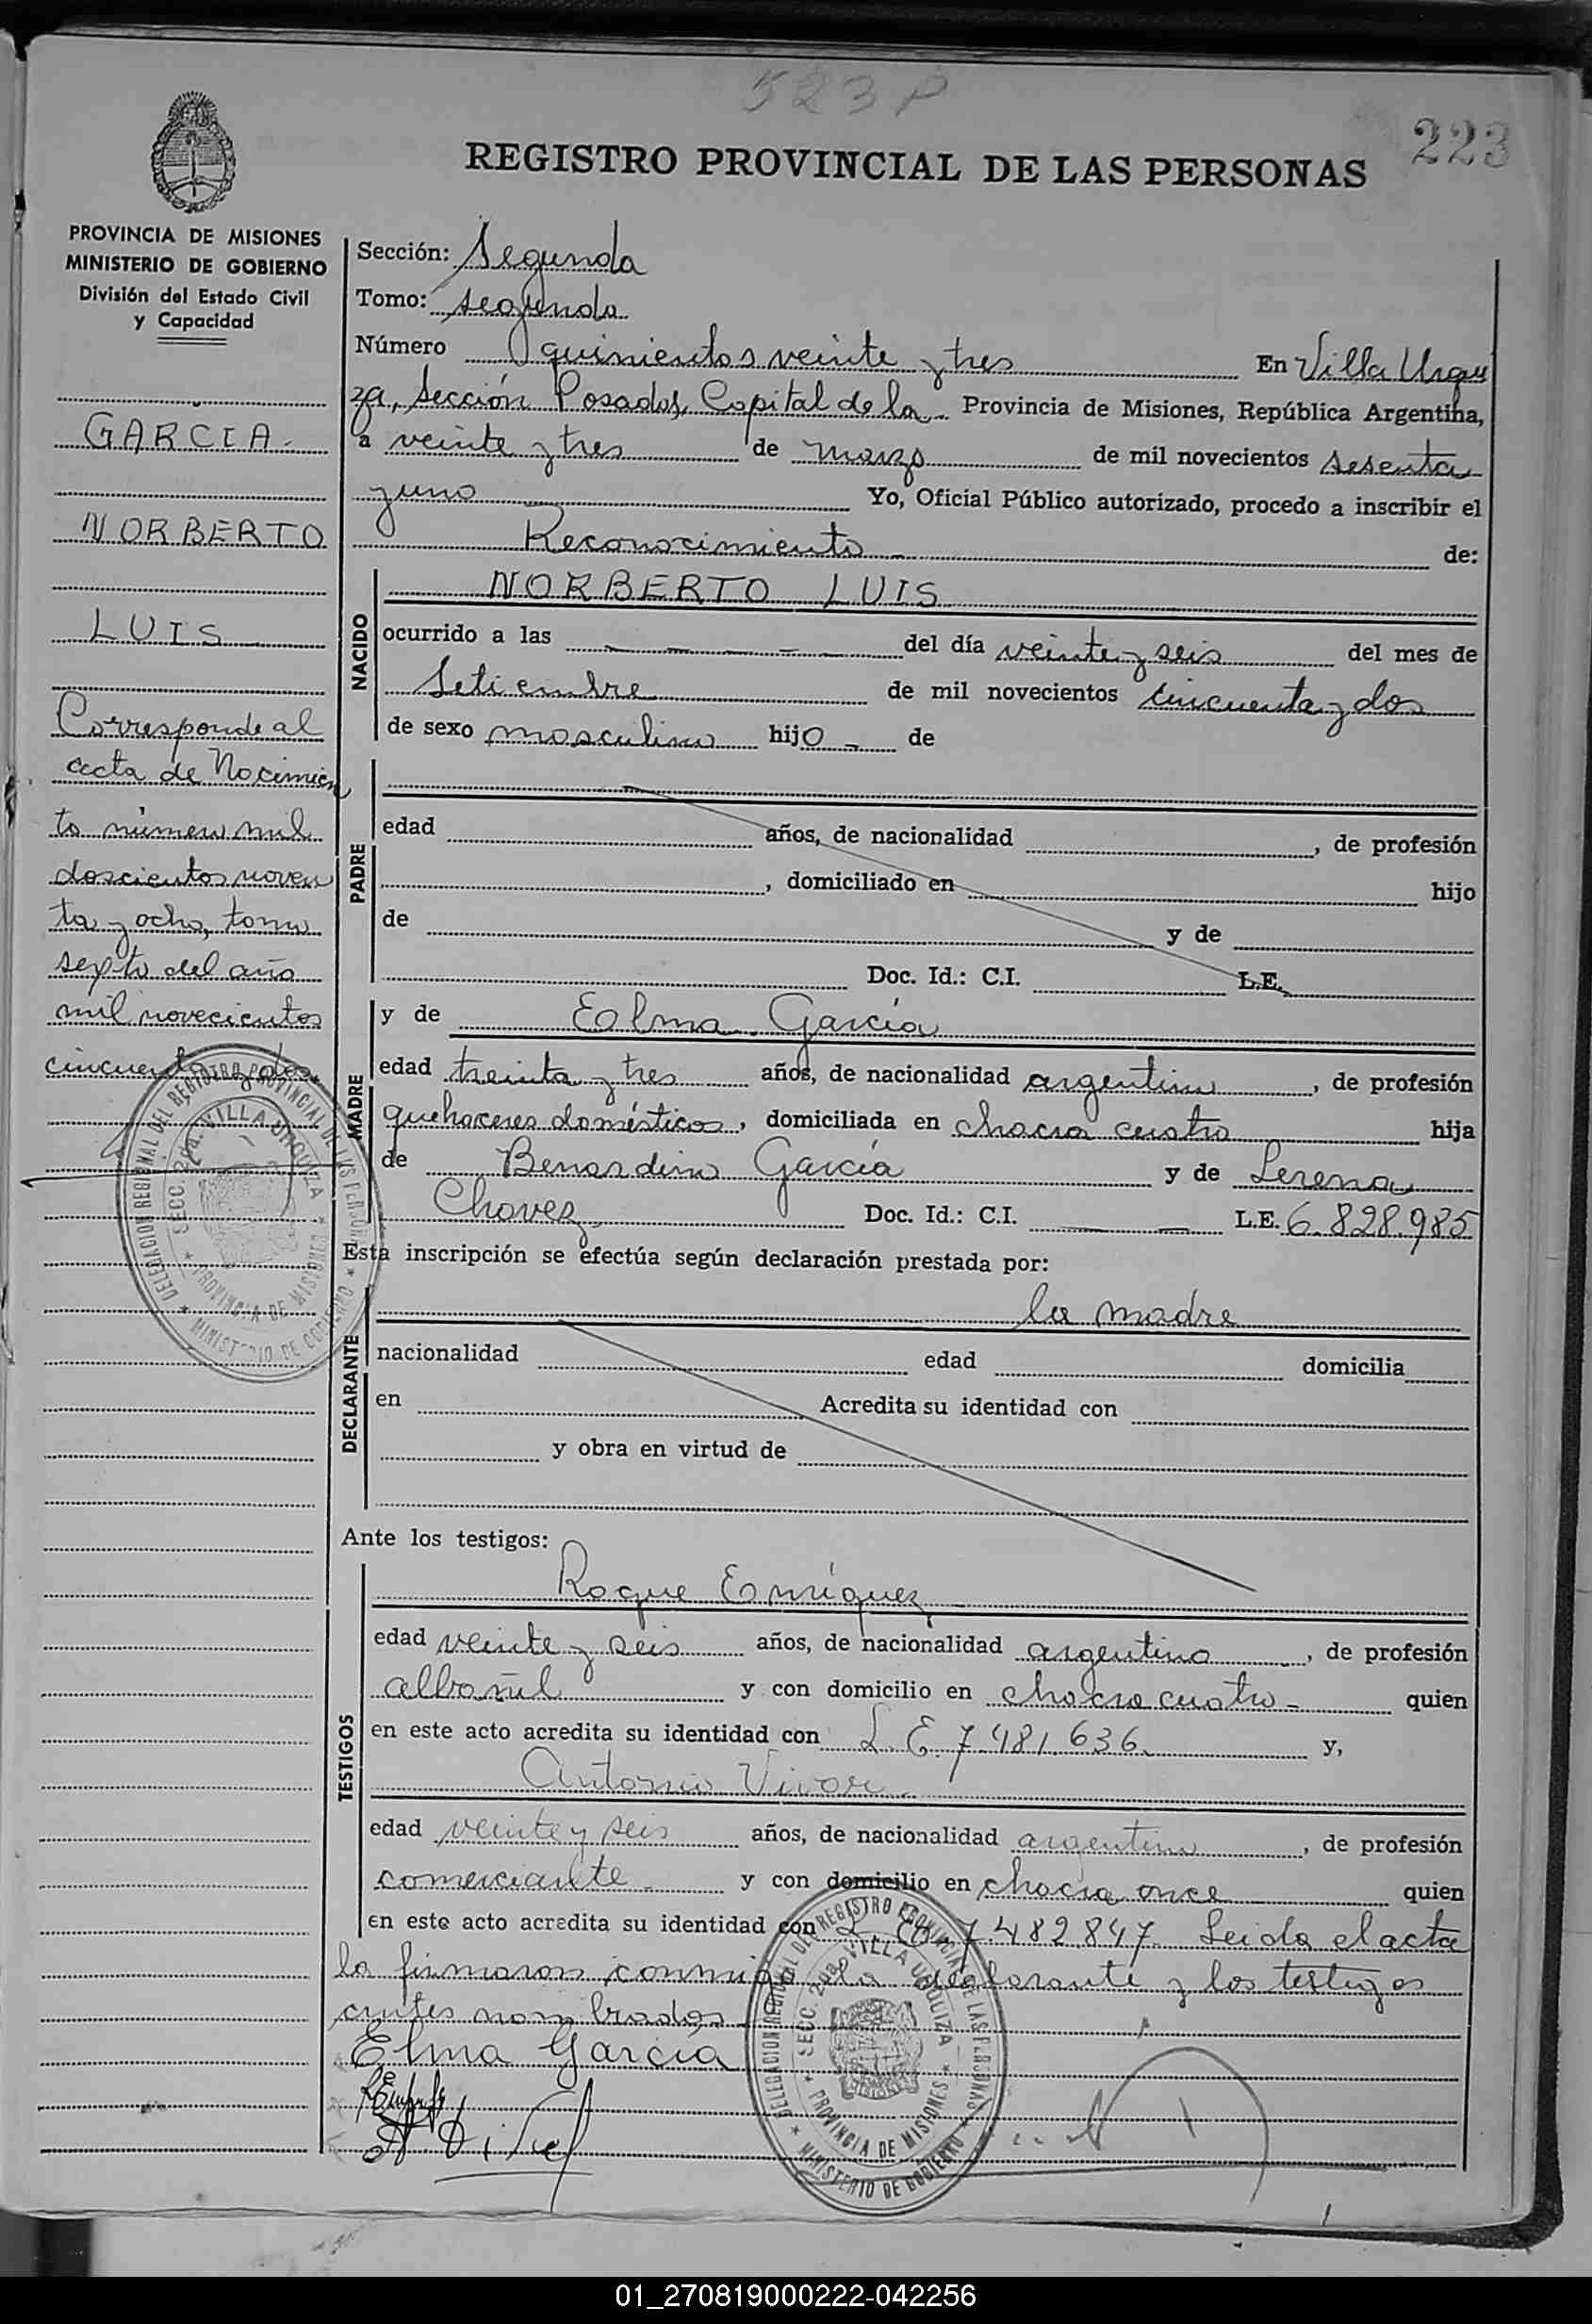 523 P
223
REGISTRO PROVINCIAL DE LAS PERSONAS
PROVINCIA DE MISIONES
MINISTERIO DE GOBIERNO
División del Estado Civil
y Capacidad
GARCIA
NORBERTO
LUIS
Corresponde al
acta de Nacimien
to número mil
doscientos noven
ta y ocho, tomo
sexto del año
mil novecientos
cincuenta y dos
DELEGACION REGIONAL DEL REGISTRO PROVINCIAL DE LAS PERSONAS * MINISTERIO DE GOBIERNO *
SECC. 2da. VILLA URQUIZA * PROVINCIA DE MISIONES *
Sección: Segunda
Tomo: segundo
Número quinientos veinte y tres En Villa Urqui
za, Sección Posadas, Capital de la Provincia de Misiones, República Argentina,
a veinte y tres de marzo de mil novecientos sesenta
y uno Yo, Oficial Público autorizado, procedo a inscribir el
Reconocimiento de:
NACIDO
NORBERTO LUIS
ocurrido a las — — — — del día veinte y seis del mes de
Setiembre de mil novecientos cincuenta y dos
de sexo masculino hijo - de
PADRE
edad años, de nacionalidad , de profesión
, domiciliado en hijo
de y de
Doc. Id.: C.I. L.E.
MADRE
y de Elma García
edad treinta y tres años, de nacionalidad argentina, de profesión
quehaceres domésticos, domiciliada en chacra cuatro hija
de Bernardino García y de Serena
Chavez Doc. Id.: C.I. — — L.E. 6.828.985
Esta inscripción se efectúa según declaración prestada por:
DECLARANTE
la madre
nacionalidad edad domicilia
en Acredita su identidad con
y obra en virtud de
Ante los testigos:
TESTIGOS
Roque Enríquez
edad veinte y seis años, de nacionalidad argentino, de profesión
albañil y con domicilio en chacra cuatro - quien
en este acto acredita su identidad con L.E. 7.481.636 y,
Antonio
edad veinte y seis años, de nacionalidad argentino, de profesión
comerciante y con domicilio en chacra once quien
en este acto acredita su identidad con L. E. 7.482.847. Leida el acta
la firmaron conmigo la declarante y los testigos
antes nombrados
Elma García
DELEGACION REGIONAL DEL REGISTRO PROVINCIAL DE LAS PERSONAS * MINISTERIO DE GOBIERNO *
SECC. 2da. VILLA URQUIZA * PROVINCIA DE MISIONES *
01_270819000222-042256